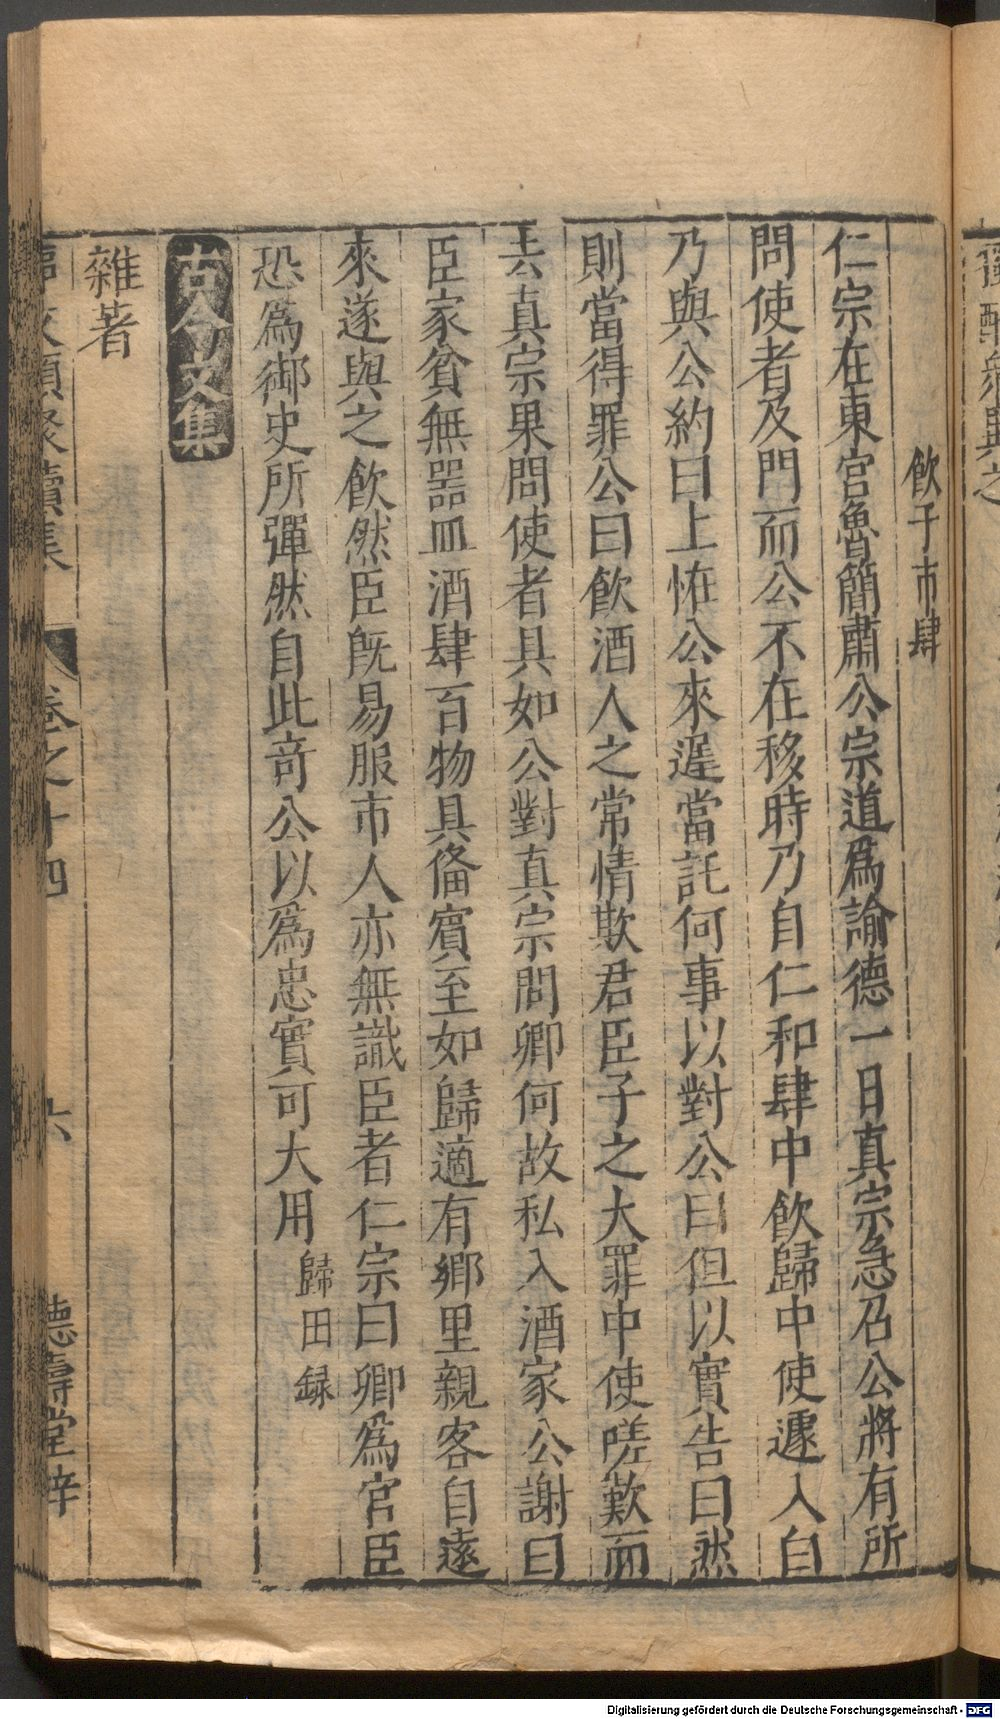 飲于市肆
仁宗在東宫魯簡肅公宗道爲諭德一日真宗急召公將有所
問使者及門而公不在移時乃自仁和肆中飲歸中使遽入白
乃與公約曰上恠公來遲當託何事以對公曰但以實告曰然
則當得罪公曰飲酒人之常情欺君臣子之大罪中使嗟歎而
去真宗果問使者具如公對真宗問卿何故私入酒家公謝曰
臣家貧無噐皿酒肆百物具俻賓至如歸適有鄉里親客自遠
來遂與之飲然臣旣易服市人亦無識臣者仁宗曰卿爲官臣
恐爲御史所彈然自此竒公以爲忠實可大用 歸田録
古今文集
雜著
事文類聚續集 卷之十四 六 德壽堂梓
Digitalisierung gefördert durch die Deutsche Forschungsgemeinschaft - DFG